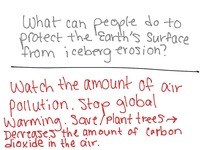 What can people do to
protect the Earth's surface
from iceberg erosion?
Watch the amount of air
Pollution. Stop global
Warming. Save/plant trees→
Decreases the amount of carbon
dioxide in the air.